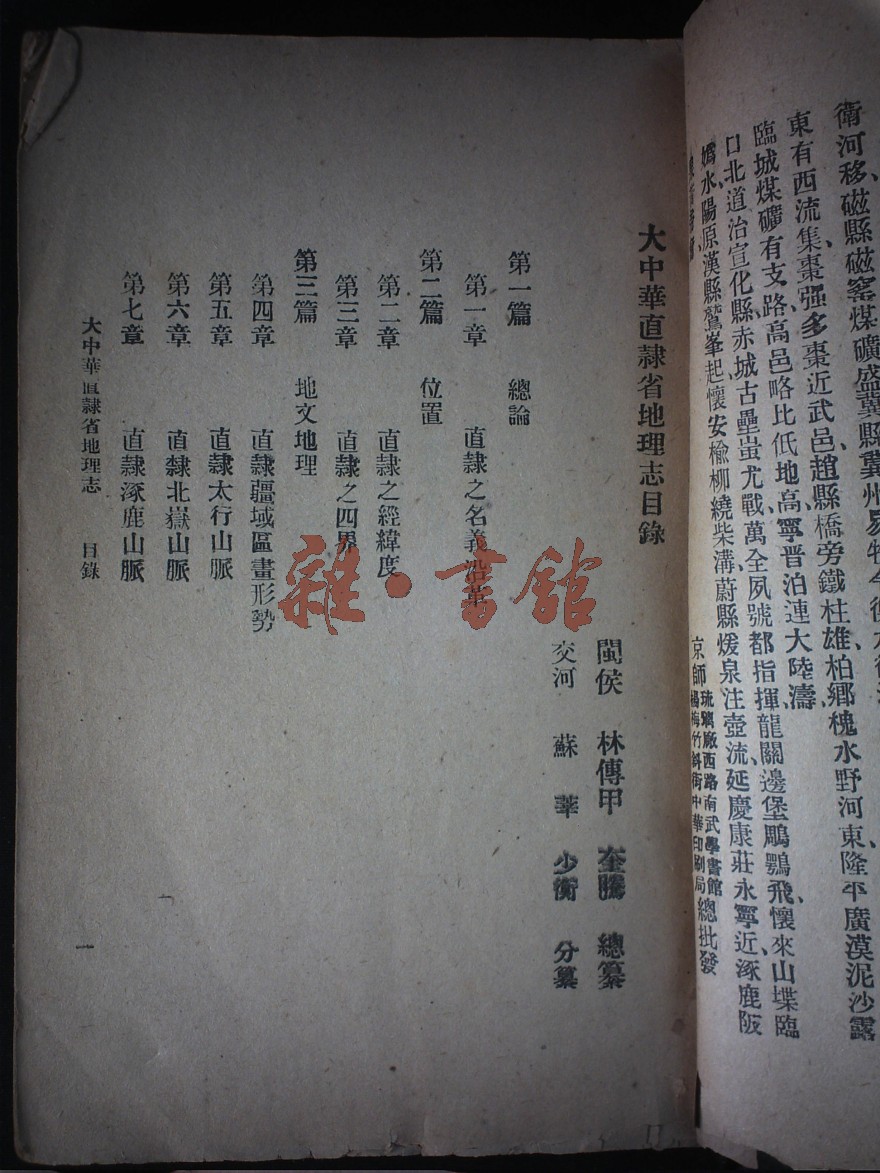 衛河移、磁縣磁窰煤礦盛冀縣冀州易
東有西流集棗强多棗近武邑趙縣橋旁鐵柱雄柏鄉槐水野河東隆平廣漠泥沙露
臨城煤礦有支路高邑略比低地高、寧晉泊連大陸濤、
口北道治宣化縣赤城古壘蚩尤戰萬全夙號都指揮龍關邊堡鵰鶚飛、懷來山堞臨
嬀水、陽原漢縣鷲峯起懷安楡柳繞柴溝、蔚縣煖泉注壺流、延慶康莊永寧近涿鹿阪
琉璃廠西路南武學書館
京師
楊梅竹斜街中華印刷局
總批發
大中華直隸省地理志目錄
閩侯 林傳甲 奎騰 總纂
交河 蘇莘 少衡 分纂
第一篇 總論
第一章 直隸之名義沿革
第二篇 位置
第二章 直隸之經緯度
第三章 直隸之四界
第三篇 地文地理
第四章 直隸疆域區畫形勢
第五章 直隸太行山脈
第六章 直隸北嶽山脈
第七章 直隸涿鹿山脈
大中華直隸省地理志 目錄
一
雜·書館